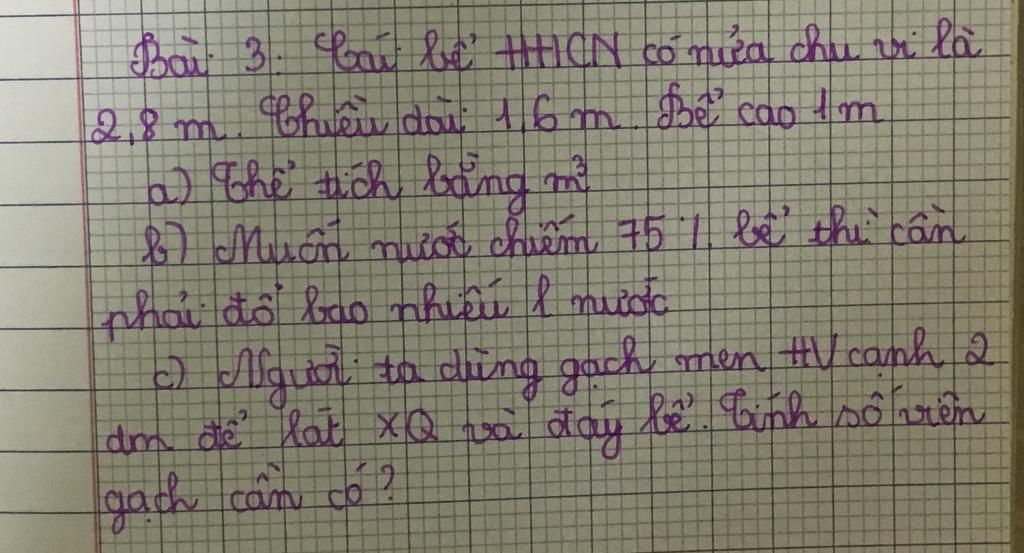 Bài 3. Cái bể HHCN có nửa chu vi là
2,8 m. Chiều dài 1,6 m. Bể cao 1 m
a) Thể tích bằng m³
b) Muốn nước chiếm 75 % bể thì cần
phải đổ bao nhiêu l nước
c) Người ta dùng gạch men HV cạnh 2
dm để lát XQ và đáy bể. Tính số viên
gạch cần có?